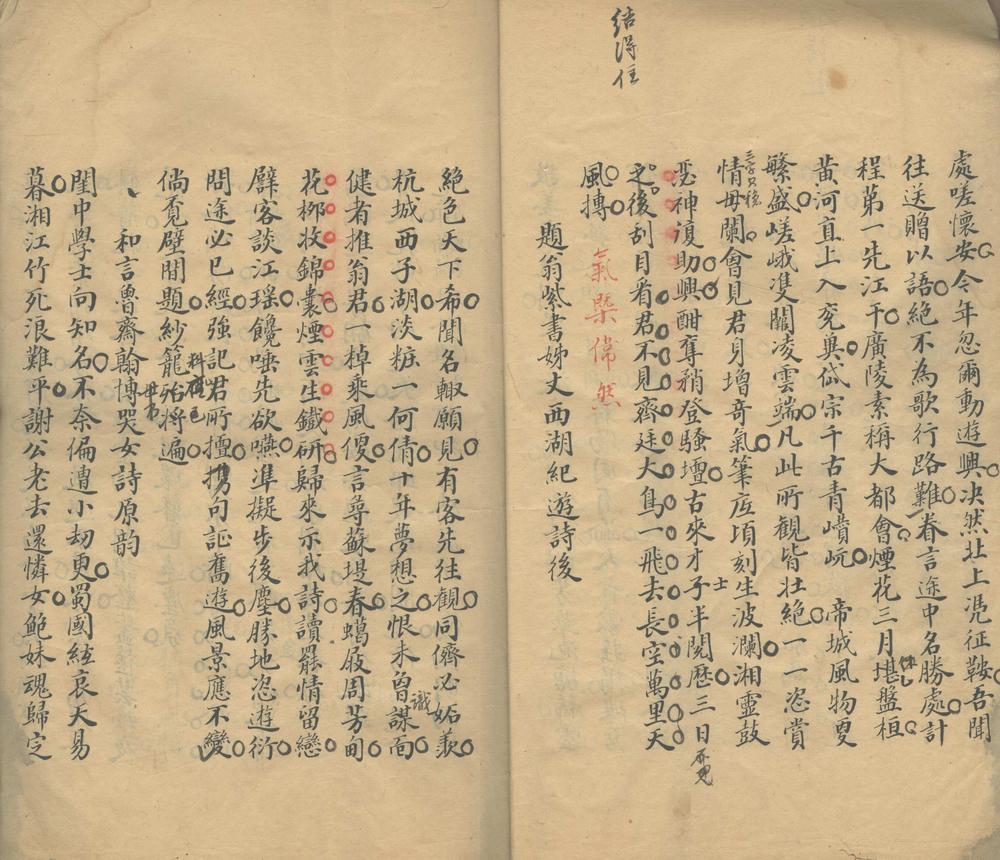 結得住
處嗟懷安今年忽爾動遊興决然北上凴征鞍吾聞
往送贈以語絕不為歌行路難眷言途中名勝處計
程第一先江干廣陵素稱大都會煙花三月堪盤桓
黄河直上入兖兾岱宗千古青巑岏 帝城風物更
繁盛嵯峨雙闕凌雲端凡此所觀皆壯絕一一恣賞
情毋闌會見君身增竒氣筆底頃刻生波瀾湘靈鼓
瑟神復助興酣奪矟登騷壇古來才子半閱歷三日
士
之後刮目看君不見齊廷大鳥一飛去長空萬里天
風摶
氣槩偉然
題翁紫書姊丈西湖紀遊詩後
絕色天下希聞名輙願見有客先往觀同儕必妬羡
杭城西子湖淡粧一何倩十年夢想之恨未曾謀面
識
健者推翁君一棹乘風便言尋蘇堤春蠟屐周芳甸
花柳收錦囊煙雲生鐵研歸來示我詩讀罷情留戀
臂客談江瑶饞唾先欲嚥準擬步後塵勝地恣遊衍
問途必已經強記君所擅携句証舊遊風景應不變
倘覔壁間題紗籠殆將遍
和言魯齋翰博哭女詩原韵
閨中學士向知名不奈偏遭小刼更蜀國絃哀天易
暮湘江竹死浪難平謝公老去還憐女鮑妹魂歸定